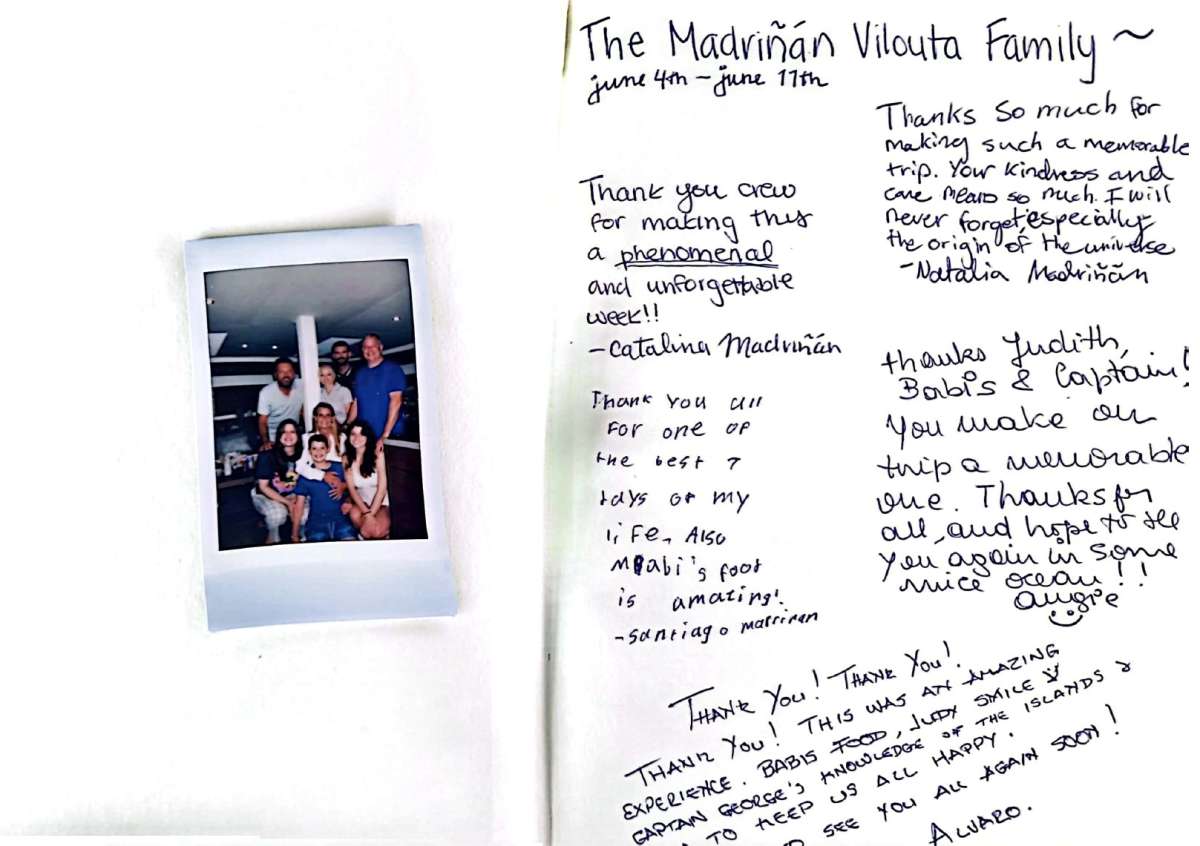 The Madriñán Vilouta Family ~
june 4th – june 11th
Thank you crew
for making this
a phenomenal
and unforgettable
week!!
– Catalina Madriñán
Thank you all
for one of
the best 7
days of my
life, Also
Babi's foot
is amazing!
- Santiago
Thanks so much for
making such a memorable
trip. Your kindness and
care means so much. I will
never forget, especially
the origin of the universe
- Natalia Madriñán
thanks Judith,
Babis & Captain!
You make our
trip a memorable
one. Thanks for
all, and hope to see
you again in some
nice ocean!!
Angie
THANK YOU! THANK YOU!
THANK YOU! THIS WAS AN AMAZING
EXPERIENCE. BABIS FOOD, JUDY SMILE &
CAPTAIN GEORGE'S KNOWLEDGE OF THE ISLANDS &
TO KEEP US ALL HAPPY.
SEE YOU ALL AGAIN SOON!
ALVARO.